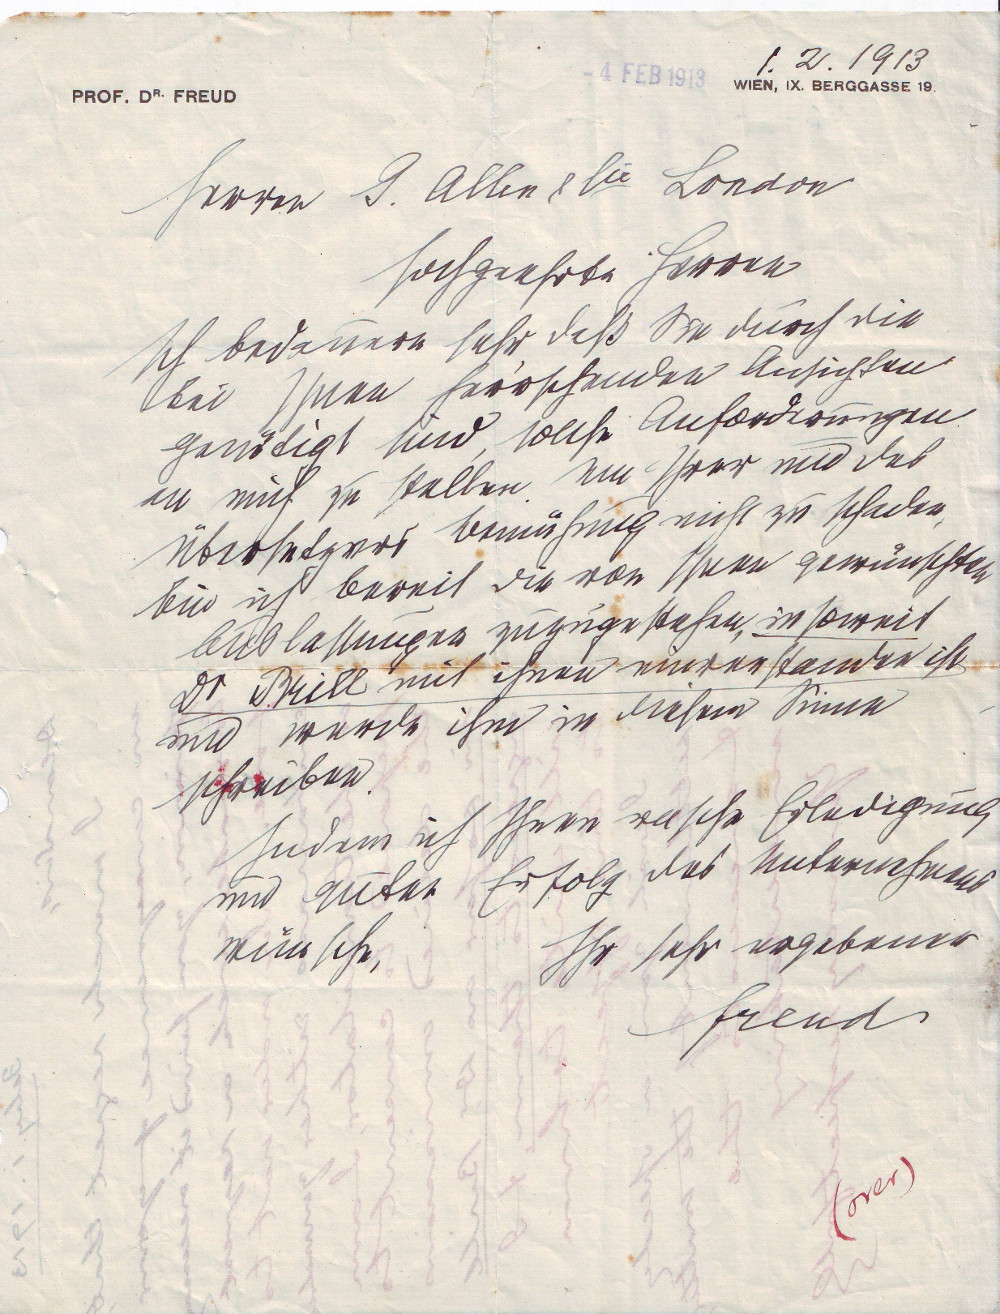 1. 2. 1913
- 4 FEB 1913
PROF. DR. FREUD
WIEN, IX. BERGGASSE 19.
Herren G. Allen & Cie London
Hochgeehrte Herren
Ich bedauere sehr daß Sie durch die
bei Ihnen herrschenden Ansichten
genötigt sind, solche Anforderungen
an mich zu stellen. Um Ihrer und des
Übersetzers Bemühung nicht zu schaden,
bin ich bereit die von Ihnen gewünschten
Auslassungen zuzugestehen, insoweit
Dr Brill mit ihnen einverstanden ist
und werde ihm in diesem Sinne
schreiben.
Indem ich Ihnen rasche Erledigung
und guten Erfolg des Unternehmens
wünsche,
Ihr sehr ergebener
Freud
(over)